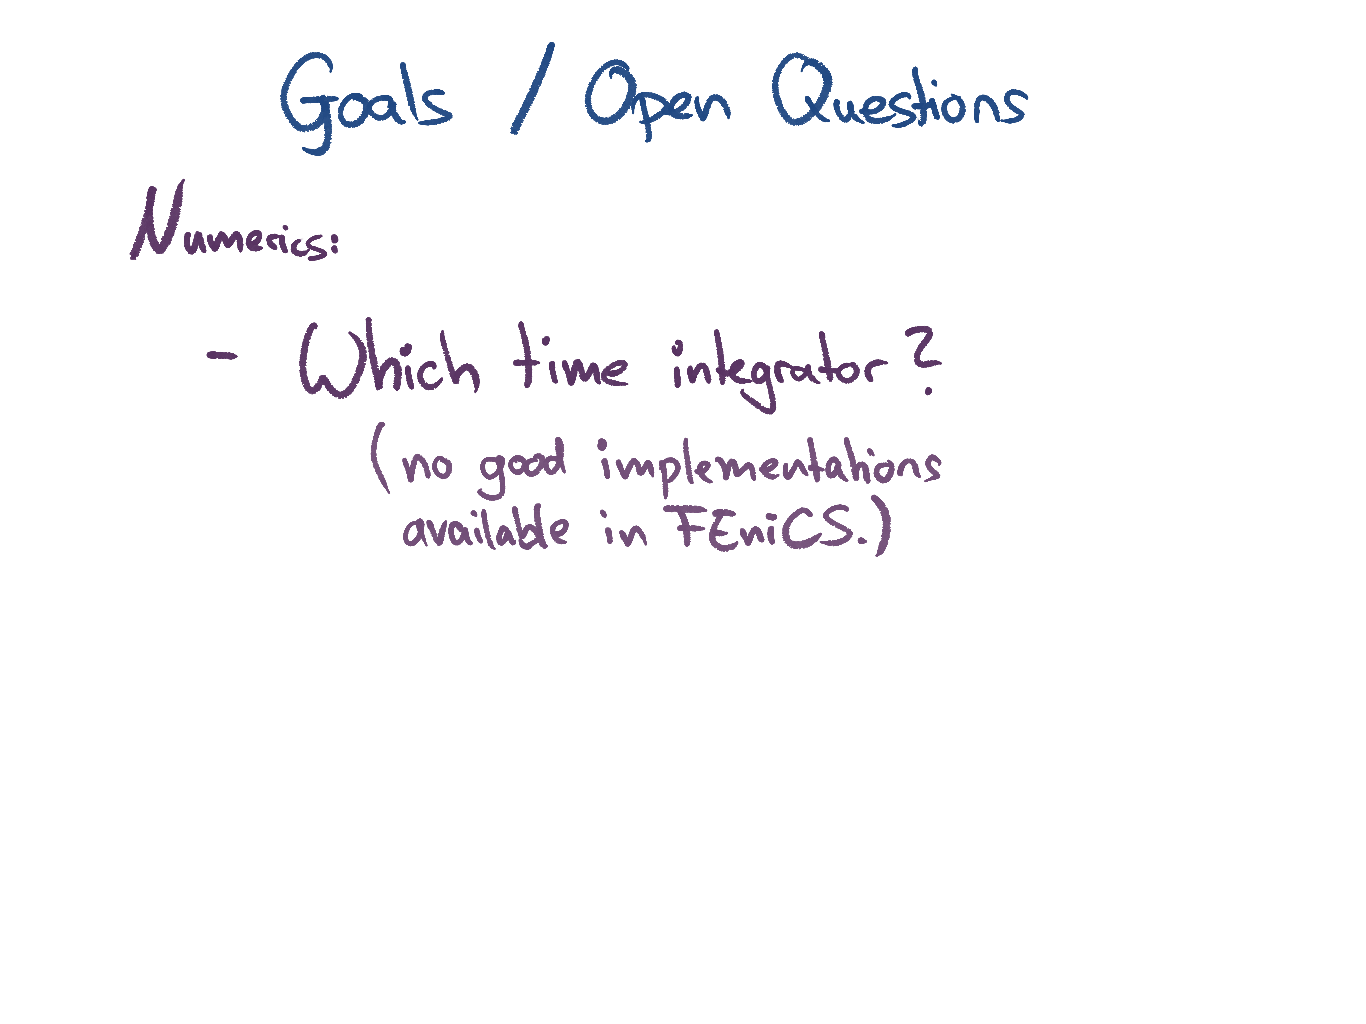 Goals / Open Questions
Numerics:
- Which time integrator?
(no good implementations
available in FEniCS.)